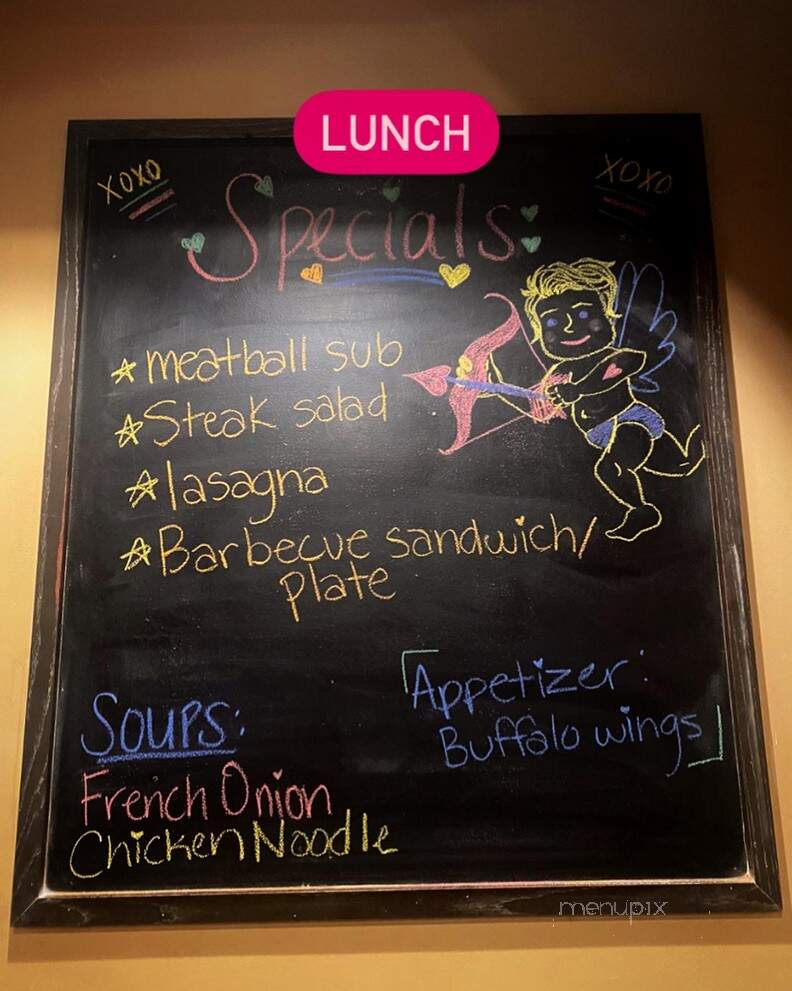 LUNCH
XOXO
XOXO
Specials
meatball sub
Steak salad
lasagna
Barbecue sandwich/
plate
Appetizer:
Buffalo wings
Soups:
French Onion
Chicken Noodle
menupix